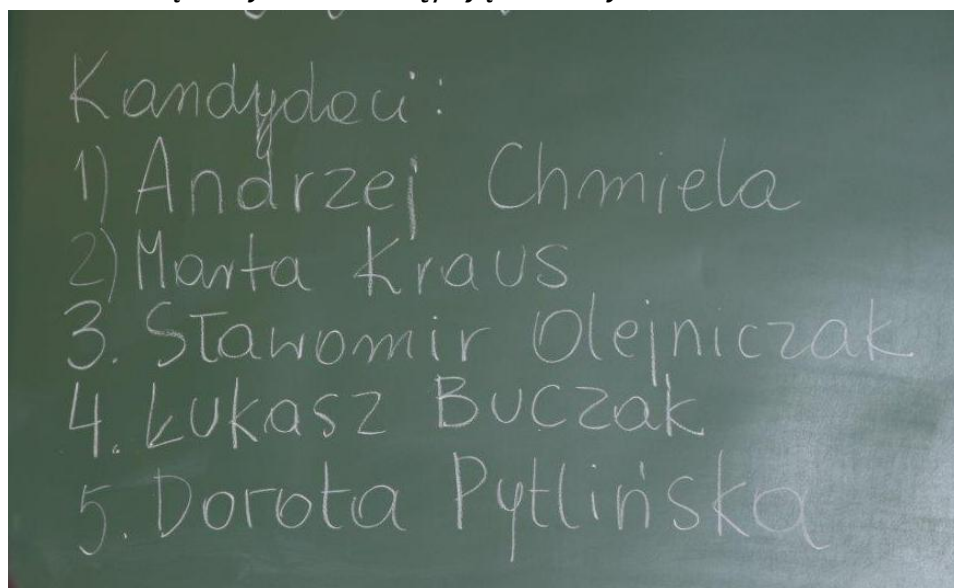 Kandydaci:
1) Andrzej Chmiela
2) Marta Kraus
3. Sławomir Olejniczak
4. Łukasz Buczak
5. Dorota Pytlińska